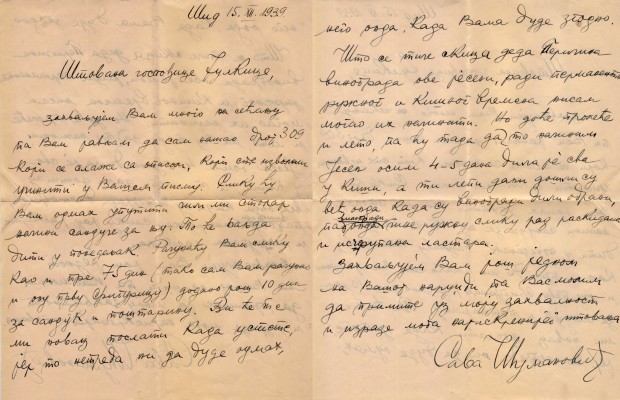 Шид 15. XII. 1939.
Штована госпођице Јулкице,
захваљујем Вам много на сећању
те Вам јављам да сам нашао број 309
који се слаже са описом, који сте изволили
учинити у Вашем писму. Слику ћу
Вам одмах упутити чим ми столар
начини сандуче за њу. То ће ваљда
бити у понедељак. Рачунаћу Вам слику
као и пре 75 дин (тако сам Вам рачунао
и ону прву) додано још 10 дин
за сандук и поштарину. Ви ће те
ми новац послати када успете,
јер то нетреба ни да буде одмах,
него онда када Вама буде згодно.
Што се тиче скица деда Перичина
винограда ове јесени, ради перманентно
ружног и кишног времена нисам
могао их начинити. Но доће пролеће
и лето, па ћу тада да то начиним
Јесен осим 4-5 дана била је сва
у киши, а ти лепи дани дошли су
већ онда када су виногради били обрани,
виногради
ружну слику рад раскидана
и ластара.
Захваљујем Вам још једном
на Вашој наруџби те Вас молим
да примите уз моју захвалност
и изразе мога најискренијег штовања
Сава Шумановић